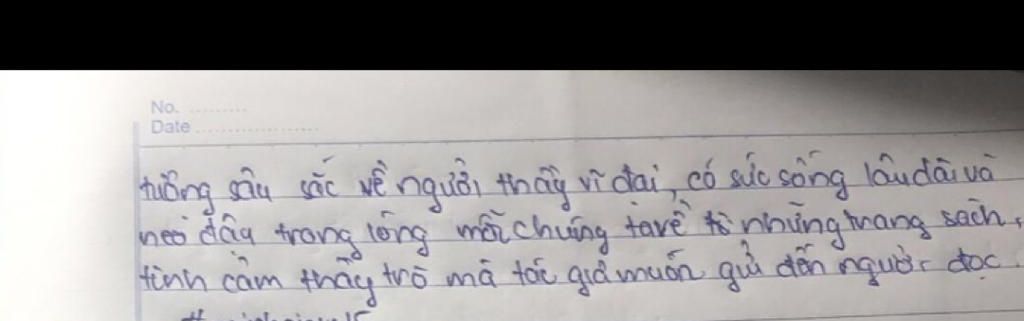 No. ..........
Date ....................
tưởng sâu sắc về người thầy vĩ đại, có sức sống lâu dài và
neo đậu trong lòng mỗi chúng ta về từ những trang sách,
tình cảm thầy trò mà tác giả muốn gửi đến người đọc.